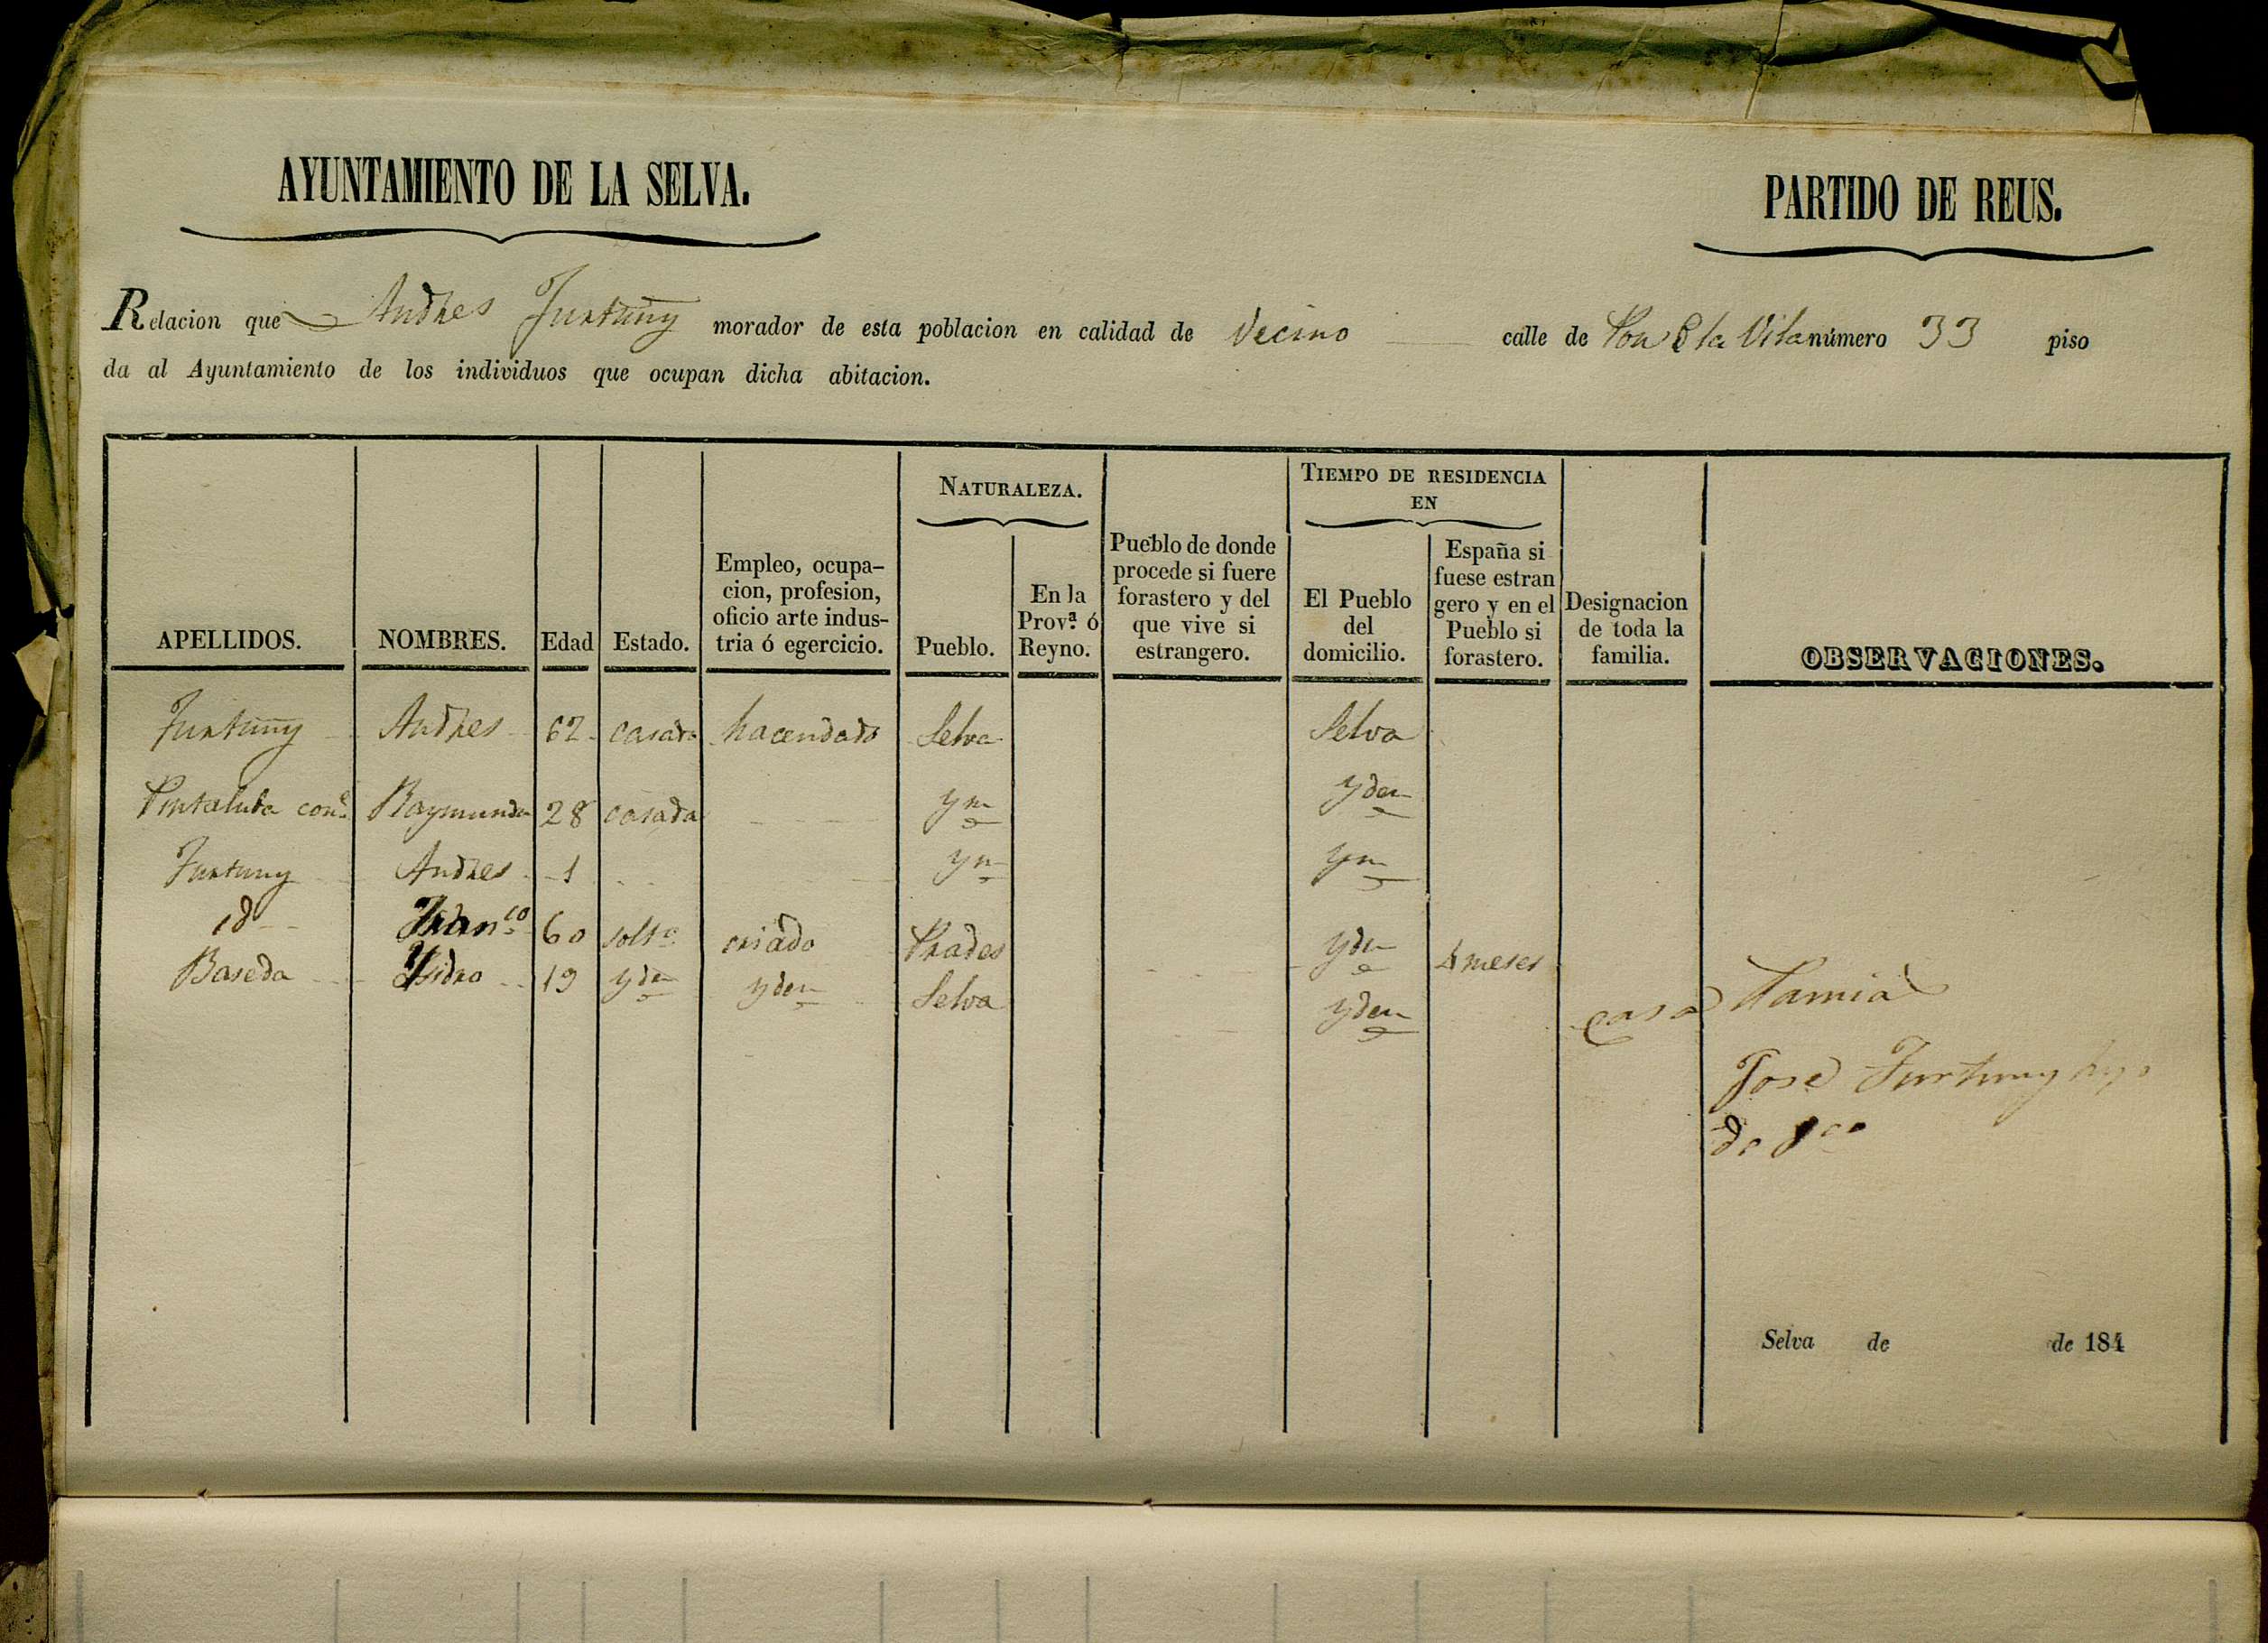 AYUNTAMIENTO DE LA SELVA.
PARTIDO DE REUS.
Relacion que Andres Furtuny morador de esta poblacion en calidad de Vecino calle de la Vila número 33 piso
da al Ayuntamiento de los individuos que ocupan dicha abitacion.
NATURALEZA.
TIEMPO DE RESIDENCIA
EN
APELLIDOS.
NOMBRES.
Edad
Estado.
Empleo, ocupa-
cion, profesion,
oficio arte indus-
tria ó egercicio.
Pueblo.
En la
Prov.ª ó
Reyno.
Pueblo de donde
procede si fuere
forastero y del
que vive si
estrangero.
El Pueblo
del
domicilio.
España si
fuese estran
gero y en el
Pueblo si
forastero.
Designacion
de toda la
familia.
OBSERVACIONES.
Furtuny Andres 62 casado hacendado Selva Selva
Raymunda 28 casada ym yden
Furtuny Andres 1 ym ym
id Fran.co 60 solt.o criado Prades yden 4 meses
Baseda Ysidro 19 yden yden Selva yden
casa
Jose Furtuny hijo
de
Selva de de 184